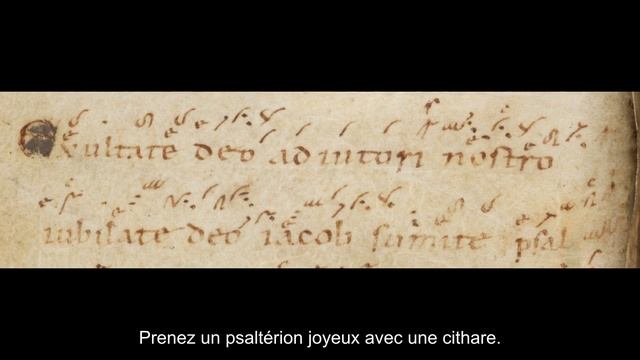 Exultate deo adiutori nostro
iubilate deo iacob sumite psal
Prenez un psaltérion joyeux avec une cithare.